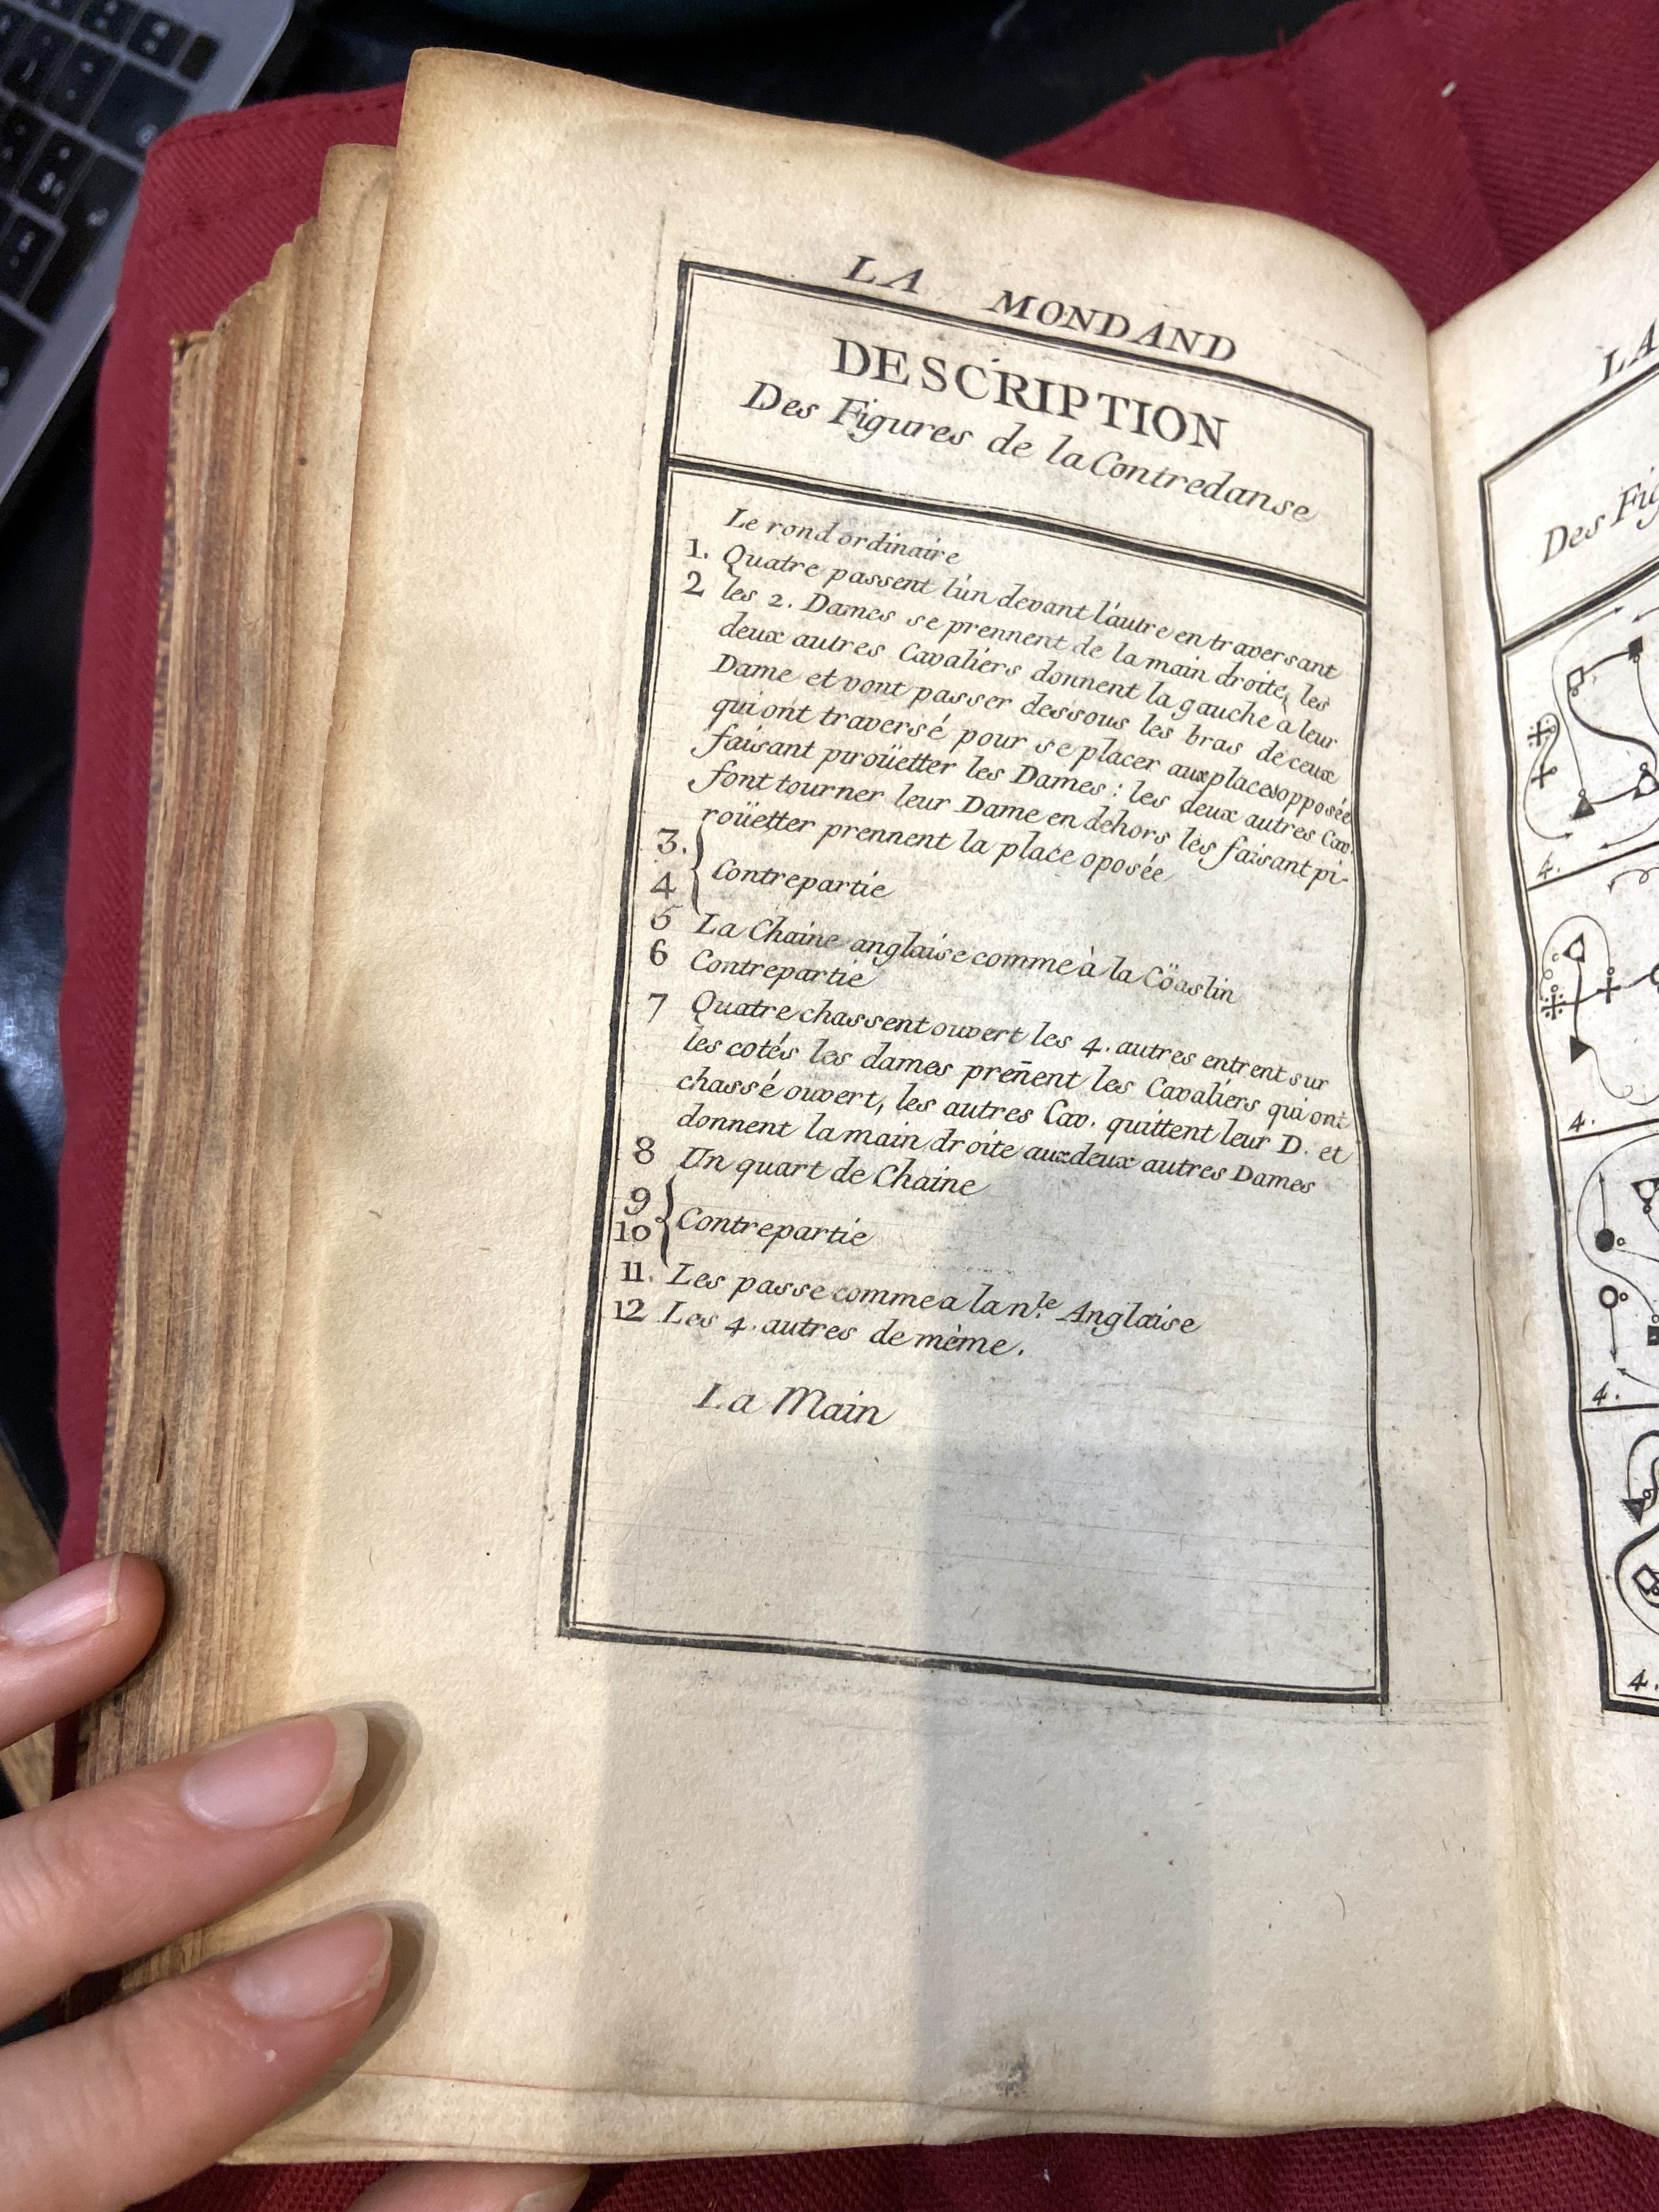 LA MONDAND
DESCRIPTION
Des Figures de la Contredanse
Le rond ordinaire
1. Quatre passent l'un devant l'autre en traversant
2 les 2. Dames se prennent de la main droite, les
deux autres Cavaliers donnent la gauche a leur
Dame et vont passer dessous les bras de ceux
qui ont traversé pour se placer aux places opposée
faisant piroüetter les Dames : les deux autres Cav.
font tourner leur Dame en dehors les faisant pi-
roüetter prennent la place oposée
3.
4 } Contrepartie
5 La Chaine anglaise comme à la Cöaslin
6 Contrepartie
7 Quatre chassent ouvert les 4. autres entrent sur
les cotés les dames preñent les Cavaliers qui ont
chassé ouvert, les autres Cav. quittent leur D. et
donnent la main droite aux deux autres Dames
8 Un quart de Chaine
9
10 } Contrepartie
11. Les passe comme a la nle. Anglaise
12 Les 4. autres de mème.
La Main
LA
Des Fig
4.
4.
4.
4.